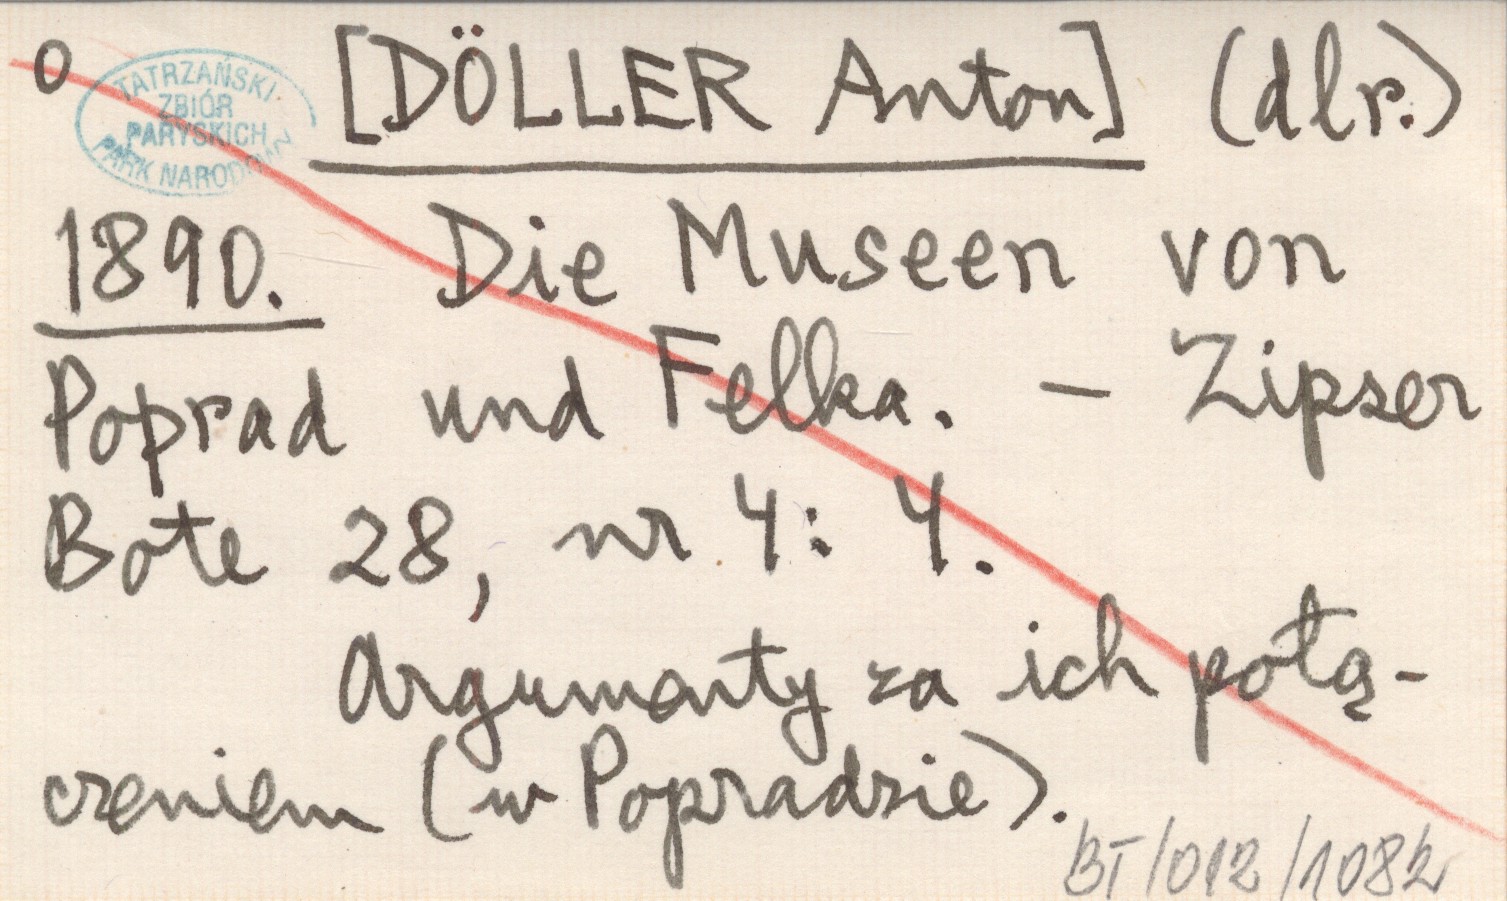 o [DÖLLER Anton] (dlr.)
TATRZAŃSKI
ZBIÓR
PARYSKICH
PARK NARODOWY
1890. Die Museen von
Poprad und Felka. – Zipser
Bote 28, nr 4: 4.
Argumenty za ich połą-
czeniem (w Popradzie).
BT/012/1082